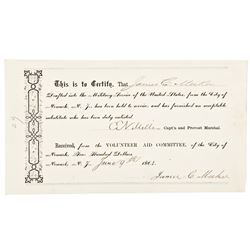 This is to Certify, That James C. Meeker
Drafted into the Military Service of the United States, from the City of
Newark, N. J. has been held to service, and has furnished an acceptable
substitute who has been duly enlisted.
E N Miller, Capt'n and Provost Marshal.
Received, from the VOLUNTEER AID COMMITTEE, of the City of
Newark, Hundred Dollars
Newark, N. J. June 9th 186
James C. Meeker